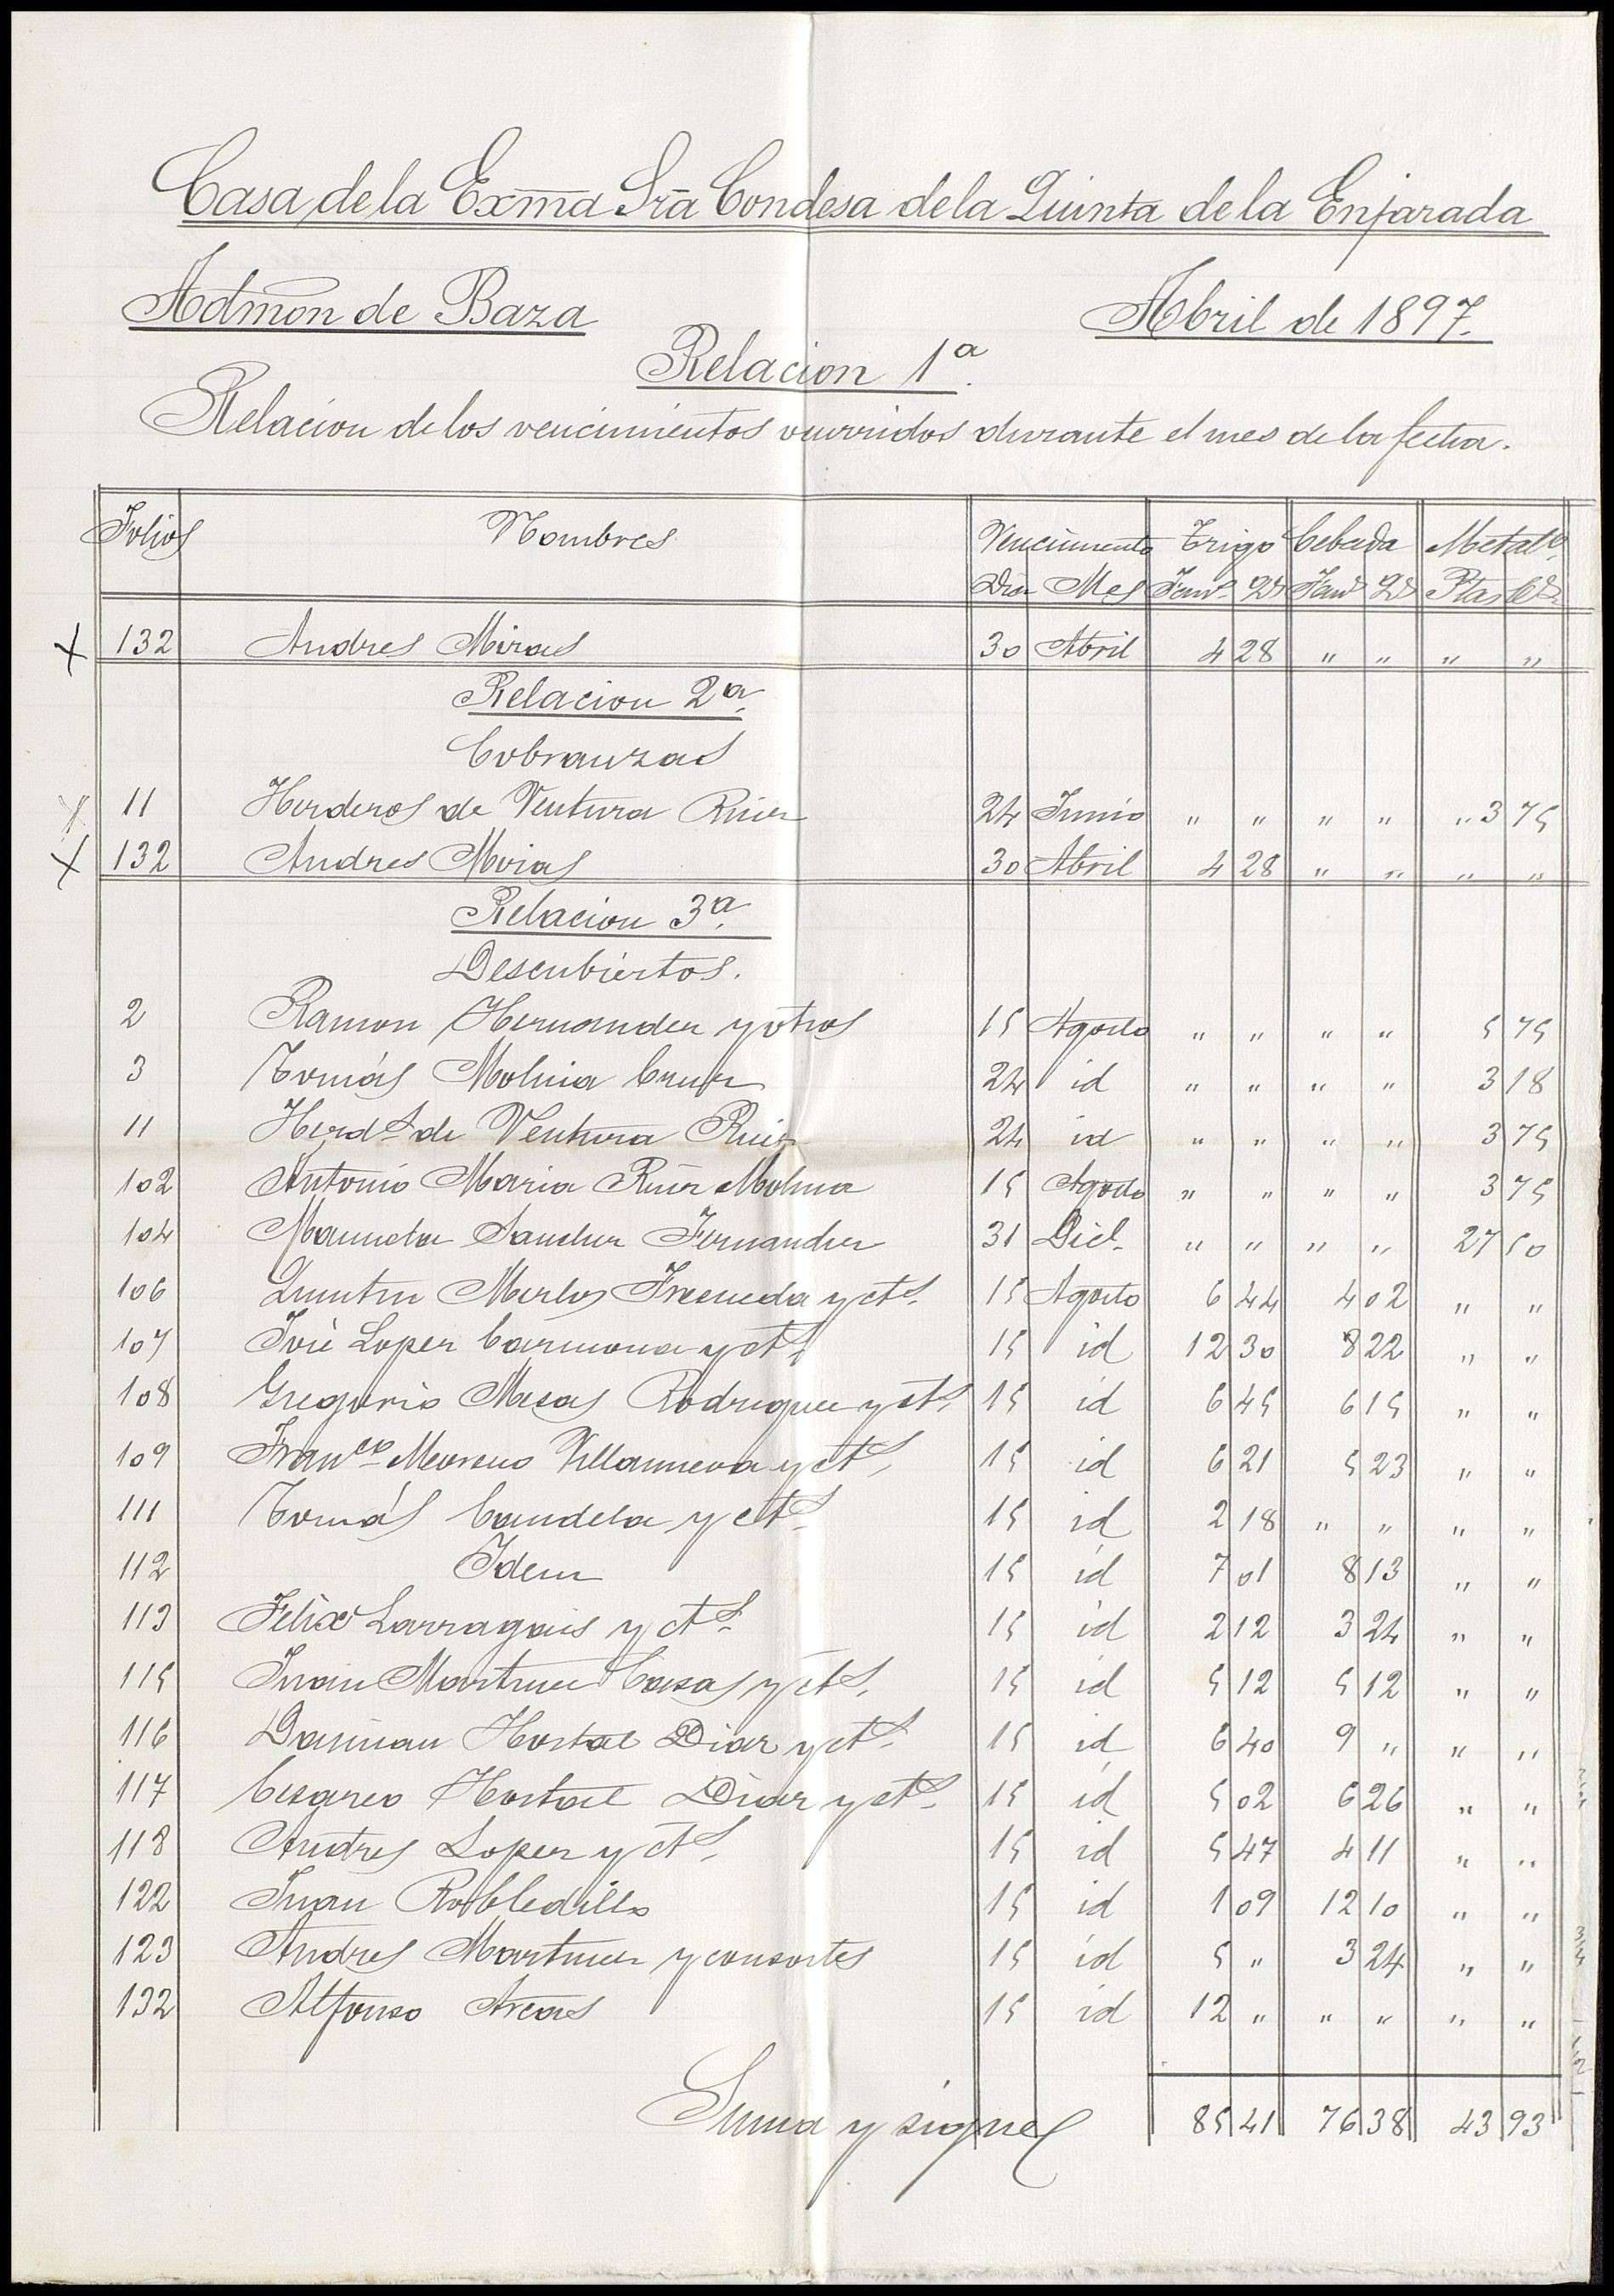 Casa de la Exma Sra Condesa de la Quinta de la Enjarada
Admon de Baza
Abril de 1897.
Relacion 1ª
Relacion de los vencimientos ocurridos durante el mes de la fecha.
Folios Nombres Vencimiento Trigo Cebada Metalº
Dia Mes Fans Qs Fans Qs Ptas Cs
132 Andres Miras 30 Abril 4 28 " " " "
Relacion 2ª
Cobranzas
11 Herderos de Ventura Ruiz 24 Junio " " " " " 3 75
132 Andres Miras 30 Abril 4 28 " " " "
Relacion 3ª
Descubiertos.
2 Ramon Hernandez y otros 15 Agosto " " " " 5 75
3 Tomás Molina Cruz 24 id " " " " 3 18
11 Herds de Ventura Ruiz 24 id " " " " 3 75
102 Antonio Maria Ruiz Molina 15 Agosto " " " " 3 75
104 Manuela Sanchez Fernandez 31 Dicl. " " " " 27 50
106 Quintin Merlos Fresneda y cts. 15 Agosto 6 44 4 02 " "
107 José Lopez Carmona y cts. 15 id 12 30 8 22 " "
108 Gregorio Mesas Rodriguez y cts. 15 id 6 45 6 15 " "
109 Franco Moreno Villanueva y cts. 15 id 6 21 5 23 " "
111 Tomás Candela y cts. 15 id 2 18 " " " "
112 Idem 15 id 7 01 8 13 " "
113 Felix Larragais y cts. 15 id 2 12 3 24 " "
115 Juan Martinez Casas y cts. 15 id 5 12 5 12 " "
116 Damian Hortal Diaz y cts. 15 id 6 40 9 " " "
117 Cesareo Hortal Diaz y cts. 15 id 5 02 6 26 " "
118 Andres Lopez y cts. 15 id 5 47 4 11 " "
122 Juan Robledillo 15 id 1 09 12 10 " "
123 Andres Martinez y consortes 15 id 5 " 3 24 " "
132 Alfonso Arcas 15 id 12 " " " " "
Suma y sigue 85 41 76 38 43 93